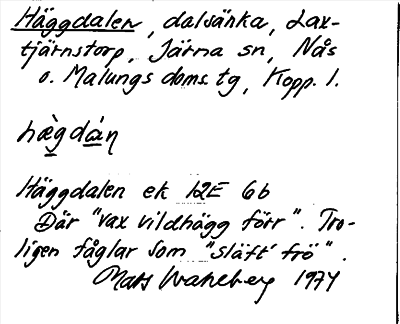 Häggdalen, dalsänka, Lax-
tjärnstorp, Järna sn, Nås
o. Malungs doms. tg, Kopp. l.
hæ̀gdáṇ
Häggdalen ek 12E 6b
Där "vax vildhägg förr". Tro-
ligen fåglar som "släft frö".
Mats Wahlberg 1974